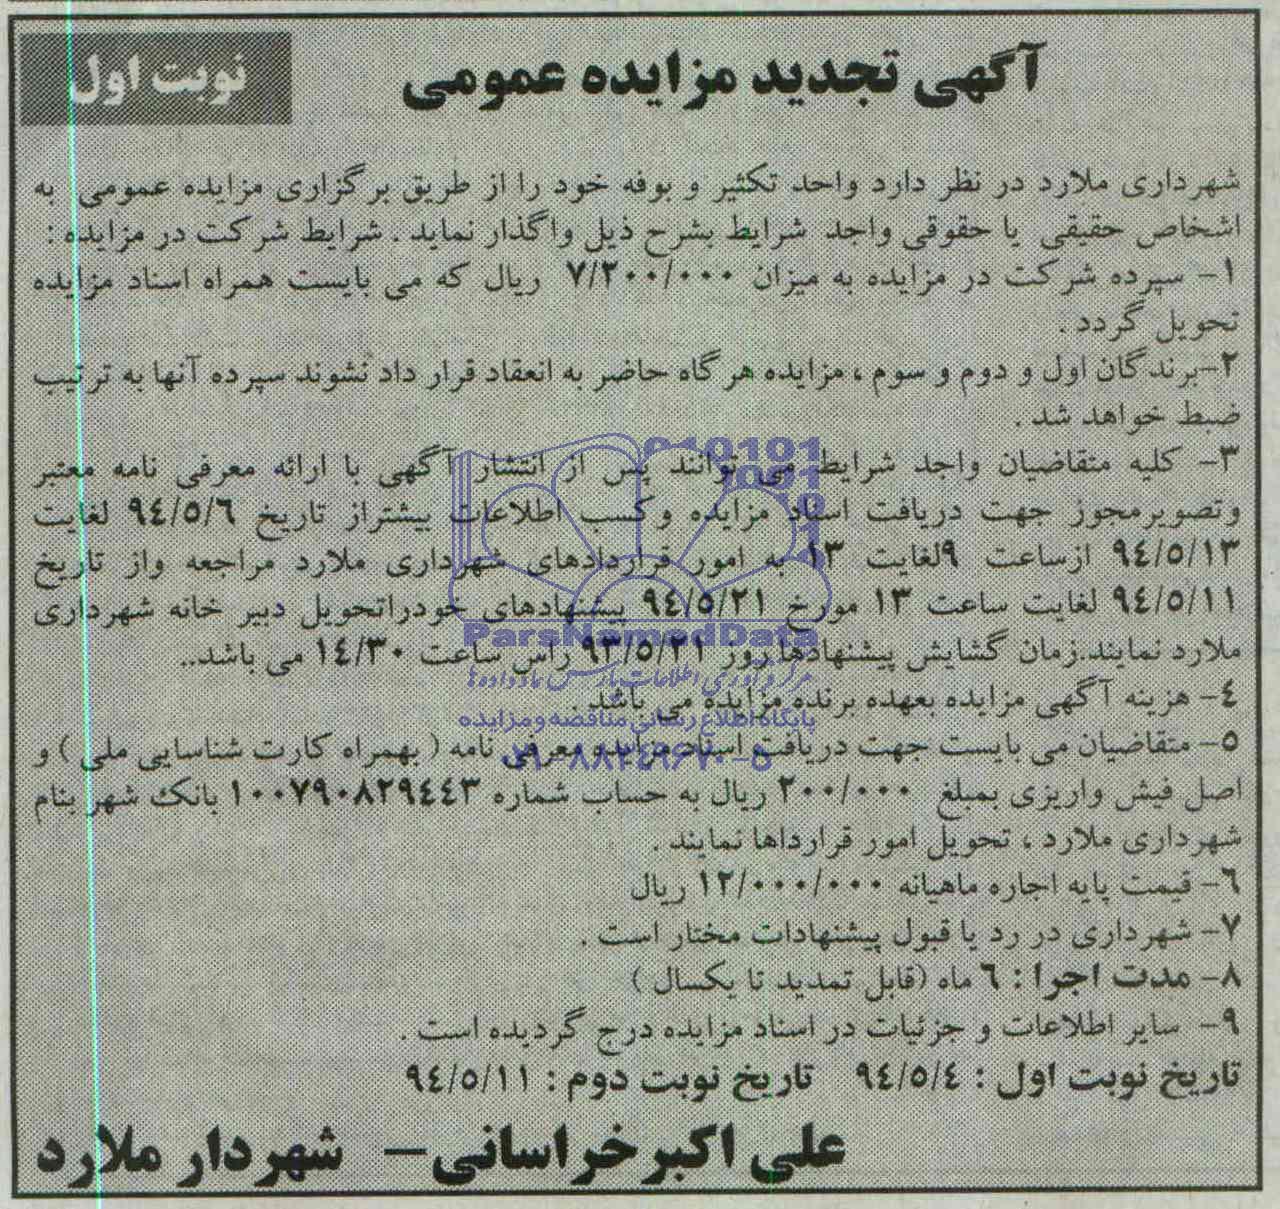 آگهی تجدید مزایده عمومی
نوبت اول
شهرداری ملارد در نظر دارد واحد تکثیر و بوفه خود را از طریق برگزاری مزایده عمومی به
اشخاص حقیقی یا حقوقی واجد شرایط بشرح ذیل واگذار نماید . شرایط شرکت در مزایده :
۱- سپرده شرکت در مزایده به میزان ۷/۲۰۰/۰۰۰ ریال که می بایست همراه اسناد مزایده
تحویل گردد .
۲-برندگان اول و دوم و سوم ، مزایده هرگاه حاضر به انعقاد قرار داد نشوند سپرده آنها به ترتیب
ضبط خواهد شد .
۳- کلیه متقاضیان واجد شرایط می توانند پس از انتشار آگهی با ارائه معرفی نامه معتبر
وتصویرمجوز جهت دریافت اسناد مزایده وکسب اطلاعات بیشتراز تاریخ ۹۴/۵/۶ لغایت
۹۴/۵/۱۳ ازساعت ۹لغایت ۱۳ به امور قراردادهای شهرداری ملارد مراجعه واز تاریخ
۹۴/۵/۱۱ لغایت ساعت ۱۳ مورخ ۹۴/۵/۲۱ پیشنهادهای خودراتحویل دبیر خانه شهرداری
ملارد نمایند.زمان گشایش پیشنهادها روز ۹۳/۵/۲۱ راس ساعت ۱۴/۳۰ می باشد..
۴- هزینه آگهی مزایده بعهده برنده مزایده می باشد .
۵- متقاضیان می بایست جهت دریافت اسناد مزایده معرفی نامه ( بهمراه کارت شناسایی ملی ) و
اصل فیش واریزی بمبلغ ۲۰۰/۰۰۰ ریال به حساب شماره ۱۰۰۷۹۰۸۲۹۴۴۳ بانک شهر بنام
شهرداری ملارد ، تحویل امور قرارداها نمایند .
۶- قیمت پایه اجاره ماهیانه ۱۲/۰۰۰/۰۰۰ ریال
۷- شهرداری در رد یا قبول پیشنهادات مختار است .
۸- مدت اجرا : ۶ ماه (قابل تمدید تا یکسال )
۹- سایر اطلاعات و جزئیات در اسناد مزایده درج گردیده است .
تاریخ نوبت اول : ۹۴/۵/۴ تاریخ نوبت دوم : ۹۴/۵/۱۱
علی اکبرخراسانی– شهردار ملارد
ParsNamadData
مرکز فرآوری اطلاعات پارس نماد داده ها
پایگاه اطلاع رسانی مناقصه و مزایده
۰۲۱-۸۸۳۴۹۶۷۰-۵